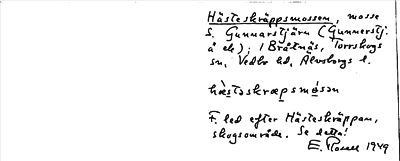 Hästeskräppsmossen, mosse
S. Gunnarstjärn (Gunnerstj.
å ek); i Bråtnäs, Torrskogs
sn, Vedbo hd, Älvsborgs l.
hæ̀stəskræpsmósən
F. led efter Hästeskräppan,
skogsområde. Se detta!
E. Rosell 1949